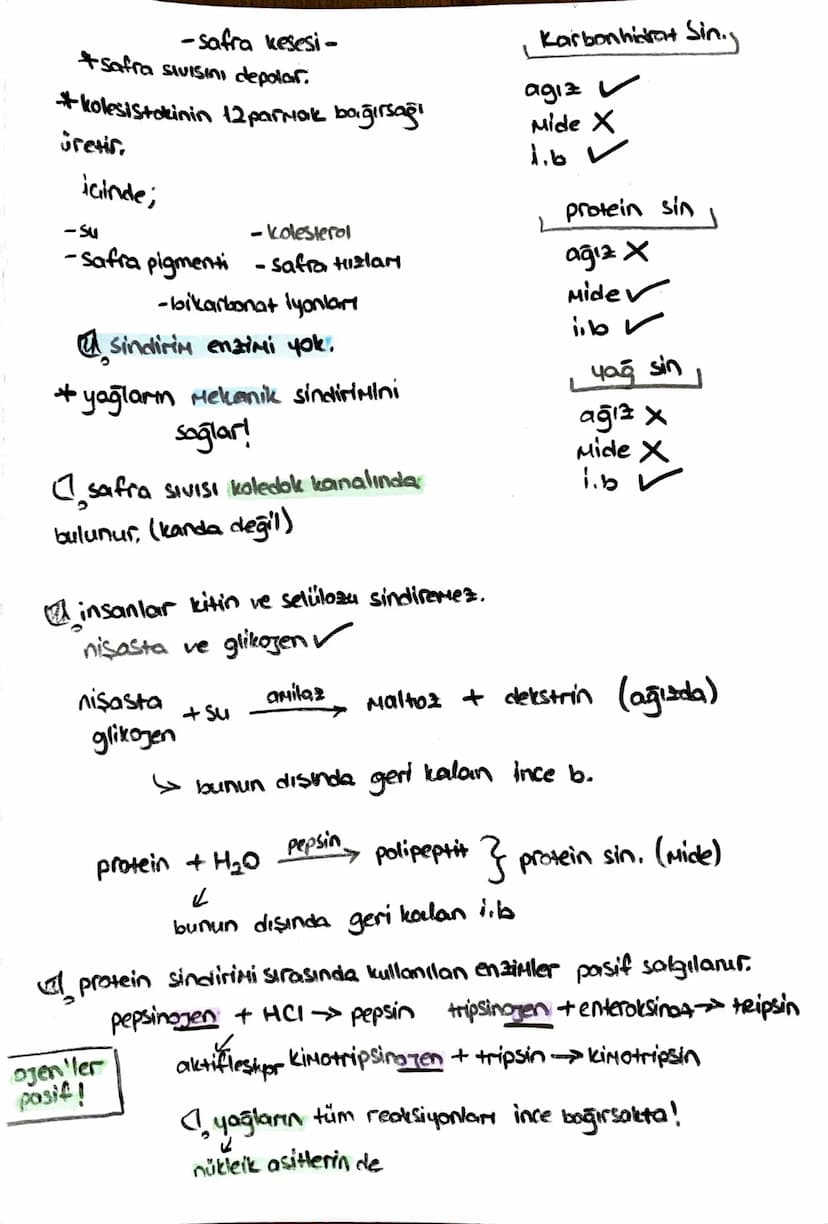 -safra kesesi-
*safra sıvısını depolar.
*kolesistokinin 12parmak bağırsağı
üretir.
içinde;
-su -kolesterol
-safra pigmenti -safra tuzları
-bikarbonat iyonları
sindirim enzimi yok.
*yağların mekanik sindirimini
sağlar!
safra sıvısı koledok kanalında
bulunur. (kanda değil)
Karbonhidrat Sin.
ağız ✓
mide X
i.b ✓
protein sin
ağız X
mide ✓
i.b ✓
yağ sin
ağız X
mide X
i.b ✓
insanlar kitin ve selülozu sindiremez.
nişasta ve glikojen ✓
nişasta
glikojen +su amilaz → maltoz + dekstrin (ağızda)
↳ bunun dışında geri kalan ince b.
protein + H₂O pepsin → polipeptit } protein sin. (mide)
↙
bunun dışında geri kalan i.b
protein sindirimi sırasında kullanılan enzimler pasif salgılanır.
pepsinojen + HCl → pepsin tripsinojen + enterokinaz → tripsin
aktifleştirir kimotripsinojen + tripsin → kimotripsin
ojen'ler
pasif!
yağların tüm reaksiyonları ince bağırsakta!
↙
nükleik asitlerin de